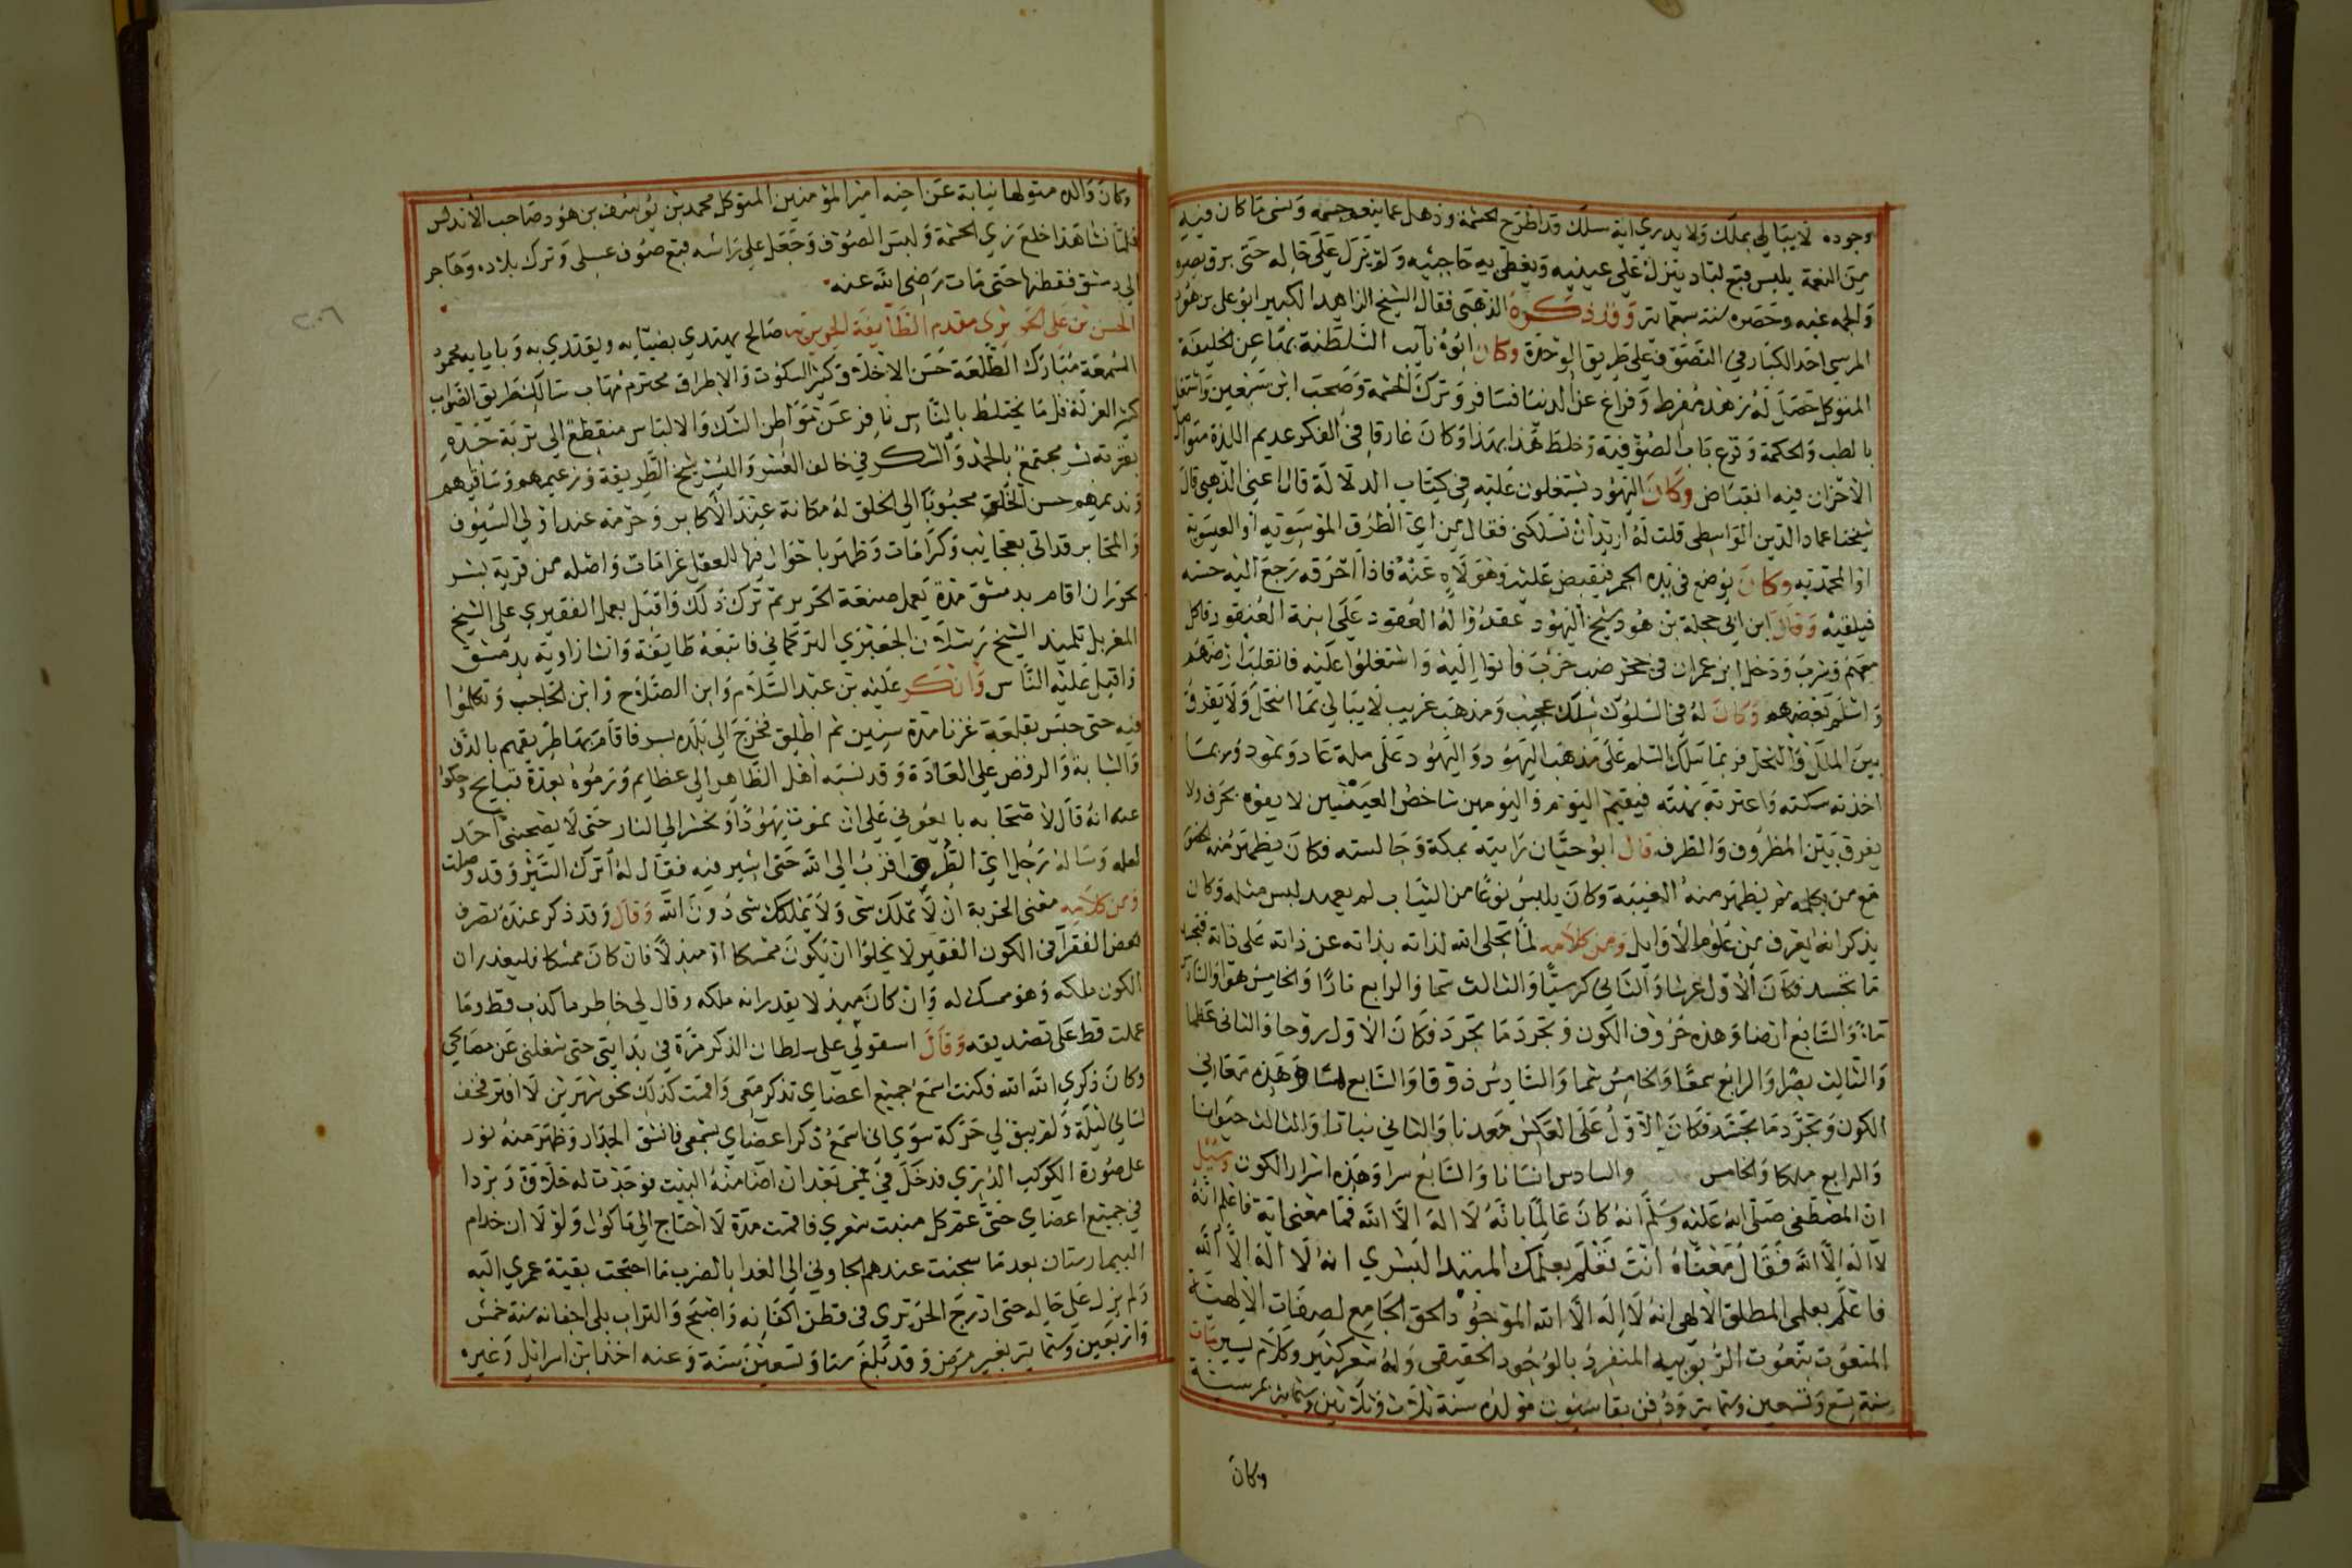 وجوده لا يبالي بملك ولا يدري اية سلك قد اطرح الحشمة وذهل عما ينعم جسمه ونسى ما كان فيه
من النعمة يلبس قبع لباد ينزل على عينيه ويغطى به حاجبيه ولم يزل على حاله حتى برق بصره
والجمه عيه وحصره سنة سبعمائة وقد ذكره الذهبى فقال الشيخ الزاهد الكبير ابو على بن هود
المرسي احد الكبار في التصوف على طريق الوحدة وكان ابوه نايب السلطنة بها عن الخليفة
المتوكل حصل له زهد مفرط وفراغ عن الدنيا فسافر وترك الحشمة وصحب ابن سبعين واشتغل
بالطب والحكمة وقرع باب الصوفية وخلط هذا بهذا وكان غارقا في الفكر عديم اللذة متواصل
الاحزان فيه انقباض وكان اليهود يشتغلون عليه في كتاب الدلالة قال اعنى الذهبي قال
شيخنا عماد الدين الواسطى قلت له اريد ان تسلكنى فقال من اي الطرق الموسوية او العيسوية
او المحمدية وكان يوضع في يده الجمر فيقبض عليه وهو لاه عنه فاذا احرقه رجع اليه حسه
فيلقيه وقال ابن ابي حجلة بن هود شيخ اليهود عقدوا له العقود على ابنة العنقود فاكل
معهم وشرب ودخل ابن عمران في جحر ضب خرب فاتوا اليه واشتغلوا عليه فانقلبت ارضهم
واسلم بعضهم وكان له في السلوك سلك عجيب ومذهب غريب لا يبالي بما انتحل ولا يفرق
بين الملل والنحل فربما سلك المسلم على مذهب اليهود واليهود على ملة عاد وثمود وربما
اخذته سكته واعترته بهته فيقيم اليوم واليومين شاخص العينين لا يفوه بحرف ولا
يفرق بين المظروف والظرف قال ابو حيان رايته بمكة وجالسته فكان يظهر منه الحضور
مع من يكلمه ثم يظهر منه الغيبة وكان يلبس نوعا من الثياب لم يعهد لبس مثله وكان
يذكر انه يعرف من علوم الأوايل ومن كلامه لما تجلى الله لذاته بذاته عن ذاته على ذاته
ما تجسد فكان الأول عرشا والثاني كرسيا والثالث سما والرابع نارا والخامس هوا والسادس
ماءً والسابع ارضا وهذه حروف الكون وتجرد ما تجرد فكان الاول روحا والثاني عقلا
والثالث بصرا والرابع سمعا والخامس شما والسادس ذوقا والسابع لمسا وهذه معاني
الكون وتجرد ما تجسد فكان الاول على العكس معدنا والثاني نباتا والثالث حيوانا
والرابع ملكا والخامس والسادس انسانا والسابع سرا وهذه اسرار الكون وسئل
ان المصطفى صلى الله عليه وسلم انه كان عالما بانه لا اله الا الله فما معنى اية فاعلم انه
لا اله الا الله فقال معناه انت تعلم بعلمك المقيد البشري انه لا اله الا الله
فاعلم بعلمي المطلق الالهى انه لا اله الا الله الموجود الحق الجامع لصفات الالهية
المنعوت بنعوت الربوبيه المنفرد بالوجود الحقيقى وله شعر كثير وكلام يسير مات
سنة تسع وتسعين وستمايه ودفن بقاسيون مولده سنة ثلاث وثلاثين وستمايه بمرسية
وكان
وكان والده متولها نيابة عن اخيه امير المؤمنين المتوكل محمد بن يوسف بن هود صاحب الأندلس
فلما نشا هذا خلع زي الحشمة ولبس الصوف وجعل على راسه قبع صوف عسلى وترك بلاده وهاجر
الى دمشق فقطنها حتى مات رضى الله عنه
الحسن بن على الحريرى مقدم الطايفة الحريرية صالح يهتدي بضيائه ويقتدي به وباياديه محمود
السمعة مبارك الطلعة حسن الاخلاق كثير السكوت والاطراق محترم مهاب سالك طريق الصواب
كثير العزلة قل ما يختلط بالناس نافر عن مواطن الشك والالتباس منقطع الى تربة خده
بقريته بسر مجتمع بالحمد والشكر في حالي العسر واليسر شيخ الطريقة وزعيمهم وساقيهم
ونديمهم حسن الخلق محبوبا الى الخلق له مكانة عند الأكابر وحرمة عند اولي السيوف
والمحابر قد اتى بعجايب وكرامات وظهر باحوال فيها للعقل غرامات واصله من قرية بسر
بحوران اقام بدمشق مدة يعمل صنعة الحرير ثم ترك ذلك واقبل بعمل الفقيري على الشيخ
المغربل تلميذ الشيخ رسلان الجعبري التركماني فاتبعه طايفة وانشا زاوية بدمشق
واقبل عليه الناس وانكر عليه بن عبد السلام وابن الصلاح وابن الحاجب وتكلموا
فيه حتى حبس بقلعة عزتا مدة سنين ثم اطلق فخرج الى بلده بسر فاقام بها طريقهم بالدف
والشبابة والرقص على العادة وقد نسبه اهل الظاهر الى عظايم ورموه بعدة قبايح وحكوا
عنه انه قال لاصحابه بايعوني على ان نموت يهودا ونحشر الى النار حتى لا يصحبنى احد
لعله وساله رجل اي الطرق اقرب الى الله حتى اسير فيه فقال له اترك السير وقد وصلت
ومن كلامه معنى الحرية ان لا تملك شى ولا يملكك شى دون الله وقال وقد ذكر عنده تصرف
بعض الفقرآ في الكون الفقير لا يخلوا ان يكون ممسكا او مبذلا فان كان ممسكا فليقدر ان
الكون ملكه وهو ممسك له وان كان مبذلا يقدر انه ملكه وقال لي خاطر ما كذب قط وما
عملت قط على تصديقه وقال استولى على سلطان الذكر مرة في بدايتى حتى شغلنى عن مصالحي
وكان ذكري الله الله فكنت اسمع جميع اعضاي تذكر معى واقمت كذلك نحو شهرين لا افتر فخف
لساني ليلة ولم يبق لي حركة سوى اني اسمع ذكر اعضاي بسمعى فانشق الجدار وظهر منه نور
على صورة الكوكب الدري فدخل في فمى بعد ان اضا منه البيت فوجدت له حلاوة وبردا
في جميع اعضاي حتى عم كل منبت شعري فاقمت مدة لا احتاج الى ماكول ولولا ان خدام
البيمارستان بعد ما سجنت عندهم الجاوني الى الغدا بالضرب ما احتجت بقية عمري اليه
ولم يزل على حاله حتى ادرج الحريري في قطن اكفانه واضجع والتراب يلى اجفانه سنة خمس
واربعين وستمايه بغير مرض وقد بلغ ستا وتسعين سنة وعنه اخذ ابن اسرائيل وغيره